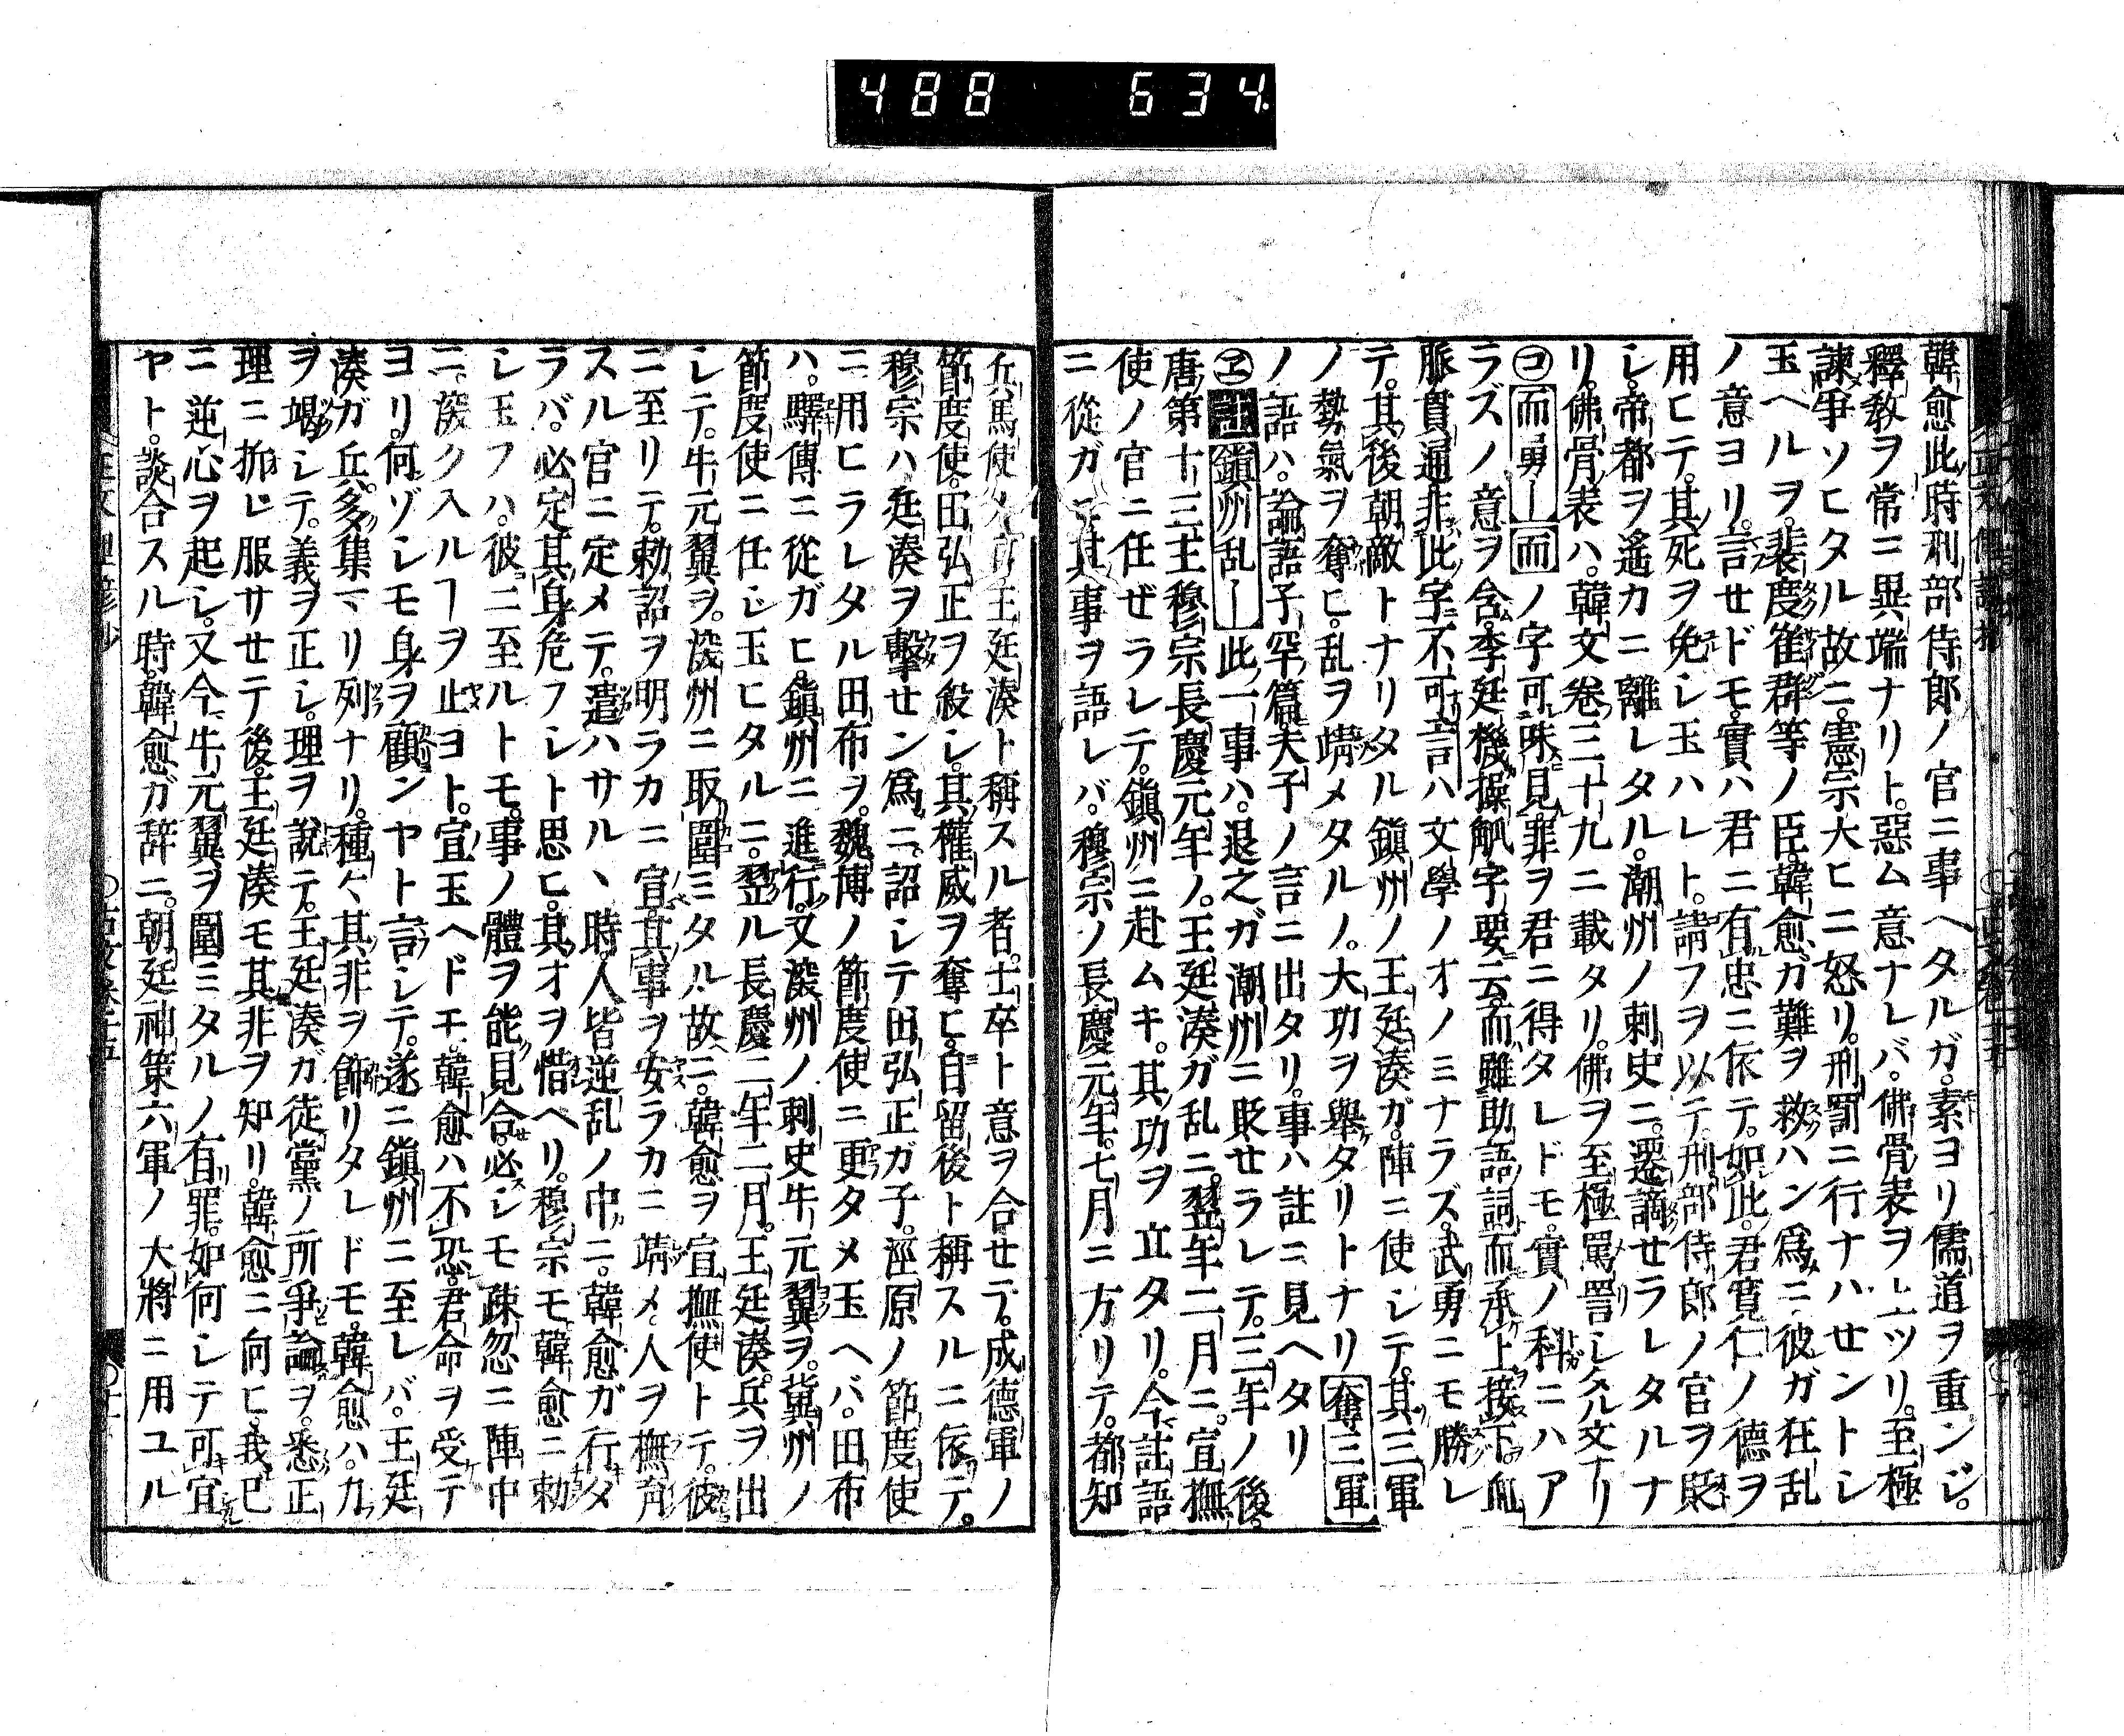 488 634
韓愈此時刑部侍郎ノ官ニ事ヘタルガ。素ヨリ儒道ヲ重ンジ。
釋教ヲ常ニ異端ナリト。惡ム意ナレバ。佛骨表ヲ上ツリ。至極
諫爭ソヒタル故ニ。憲宗大ヒニ怒リ。刑罰ニ行ナハせントシ
玉ヘルヲ。裴度崔群等ノ臣。韓愈ガ難ヲ救ハン爲ニ。彼ガ狂乱
ノ意ヨリ。言せドモ。實ハ君ニ有忠ニ依テ。如此。君寛仁ノ德ヲ
用ヒテ。其死ヲ免シ玉ハレト。請フヲ以テ。刑部侍郎ノ官ヲ貶
シ。帝都ヲ遙カニ離レタル。潮州ノ刺史ニ。遷謫せラレタルナ
リ。佛骨表ハ。韓文卷三十九ニ載タリ。佛ヲ至極罵詈シタル文ナリ
㋙而勇ー而ノ字可味見。罪ヲ君ニ得タレドモ。實ノ科ニハア
ラズノ意ヲ含。李廷機操觚字要云。而雖助語詞而承上接下。血
脈貫通非此字不可言ハ文學ノオノミナラズ。武勇ニモ勝レ
テ。其後朝敵トナリタル鎭州ノ王廷湊ガ。陣ニ使シテ。其三軍
ノ勢氣ヲ奪ヒ。乱ヲ靖メタルノ。大功ヲ舉タリトナリ奪三軍
ノ語ハ。論語子罕篇夫子ノ言ニ出タリ。事ハ註ニ見ヘタリ
㋓註鎭州乱ー此一事ハ。退之ガ潮州ニ貶せラレテ。三年ノ後。
唐第十三主穆宗長慶元年ノ。王廷湊ガ乱ニ。翌年二月ニ。宣撫
使ノ官ニ任ぜラレテ。鎭州ニ赴ムキ。其功ヲ立タリ。今註語
ニ從ガヒ其事ヲ語レバ。穆宗ノ長慶元年。七月ニ方リテ。都知
兵馬使王廷湊ト稱スル者。士卒ト意ヲ合せテ。成德軍ノ
節度使。田弘正ヲ殺シ。其權威ヲ奪ヒ。自留後ト稱スルニ依テ。
穆宗ハ廷湊ヲ擊せン爲ニ。詔シテ田弘正ガ子。涇原ノ節度使
ニ。用ヒラレタル田布ヲ。魏博ノ節度使ニ更タメ玉ヘバ。田布
ハ。驛傳ニ從ガヒ。鎭州ニ進行。又深州ノ刺史牛元翼ヲ。冀州ノ
節度使ニ任ジ玉ヒタルニ。翌ル長慶二年二月。王廷湊。兵ヲ出
シテ。牛元翼ヲ。深州ニ取圍ミタル故ニ。韓愈ヲ宣撫使トテ。彼
ニ至リテ。勅詔ヲ明ラカニ宣。其事ヲ安ラカニ靖メ。人ヲ撫育
スル官ニ定メテ。遣ハサル、時。人皆逆乱ノ中ニ。韓愈ガ行タ
ラバ。必定其身危フシト思ヒ。其オヲ惜ヘリ。穆宗モ韓愈ニ勅
シ玉フハ。彼ニ至ルトモ。事ノ體ヲ能見合。必シモ疎忽ニ陣中
ニ。深ク入ルヿヲ止ヨト。宣玉ヘドモ。韓愈ハ不恐。君命ヲ受テ
ヨリ。何ゾシモ身ヲ顧ンヤト言シテ。遂ニ鎭州ニ至レバ。王廷
湊ガ兵。多集マリ列ナリ。種々其非ヲ飾リタレドモ。韓愈ハ。力
ヲ竭シテ。義ヲ正シ。理ヲ說テ。王廷湊ガ徒黨ノ所爭論ヲ。悉正
理ニ折ヒ服サせテ後。王廷湊モ其非ヲ知リ。韓愈ニ向ヒ。我已
ニ逆心ヲ起シ。又今牛元翼ヲ圍ミタルノ有罪。如何シテ可宜
ヤト。談合スル時。韓愈ガ辞ニ。朝廷神策六軍ノ大將ニ用ユル